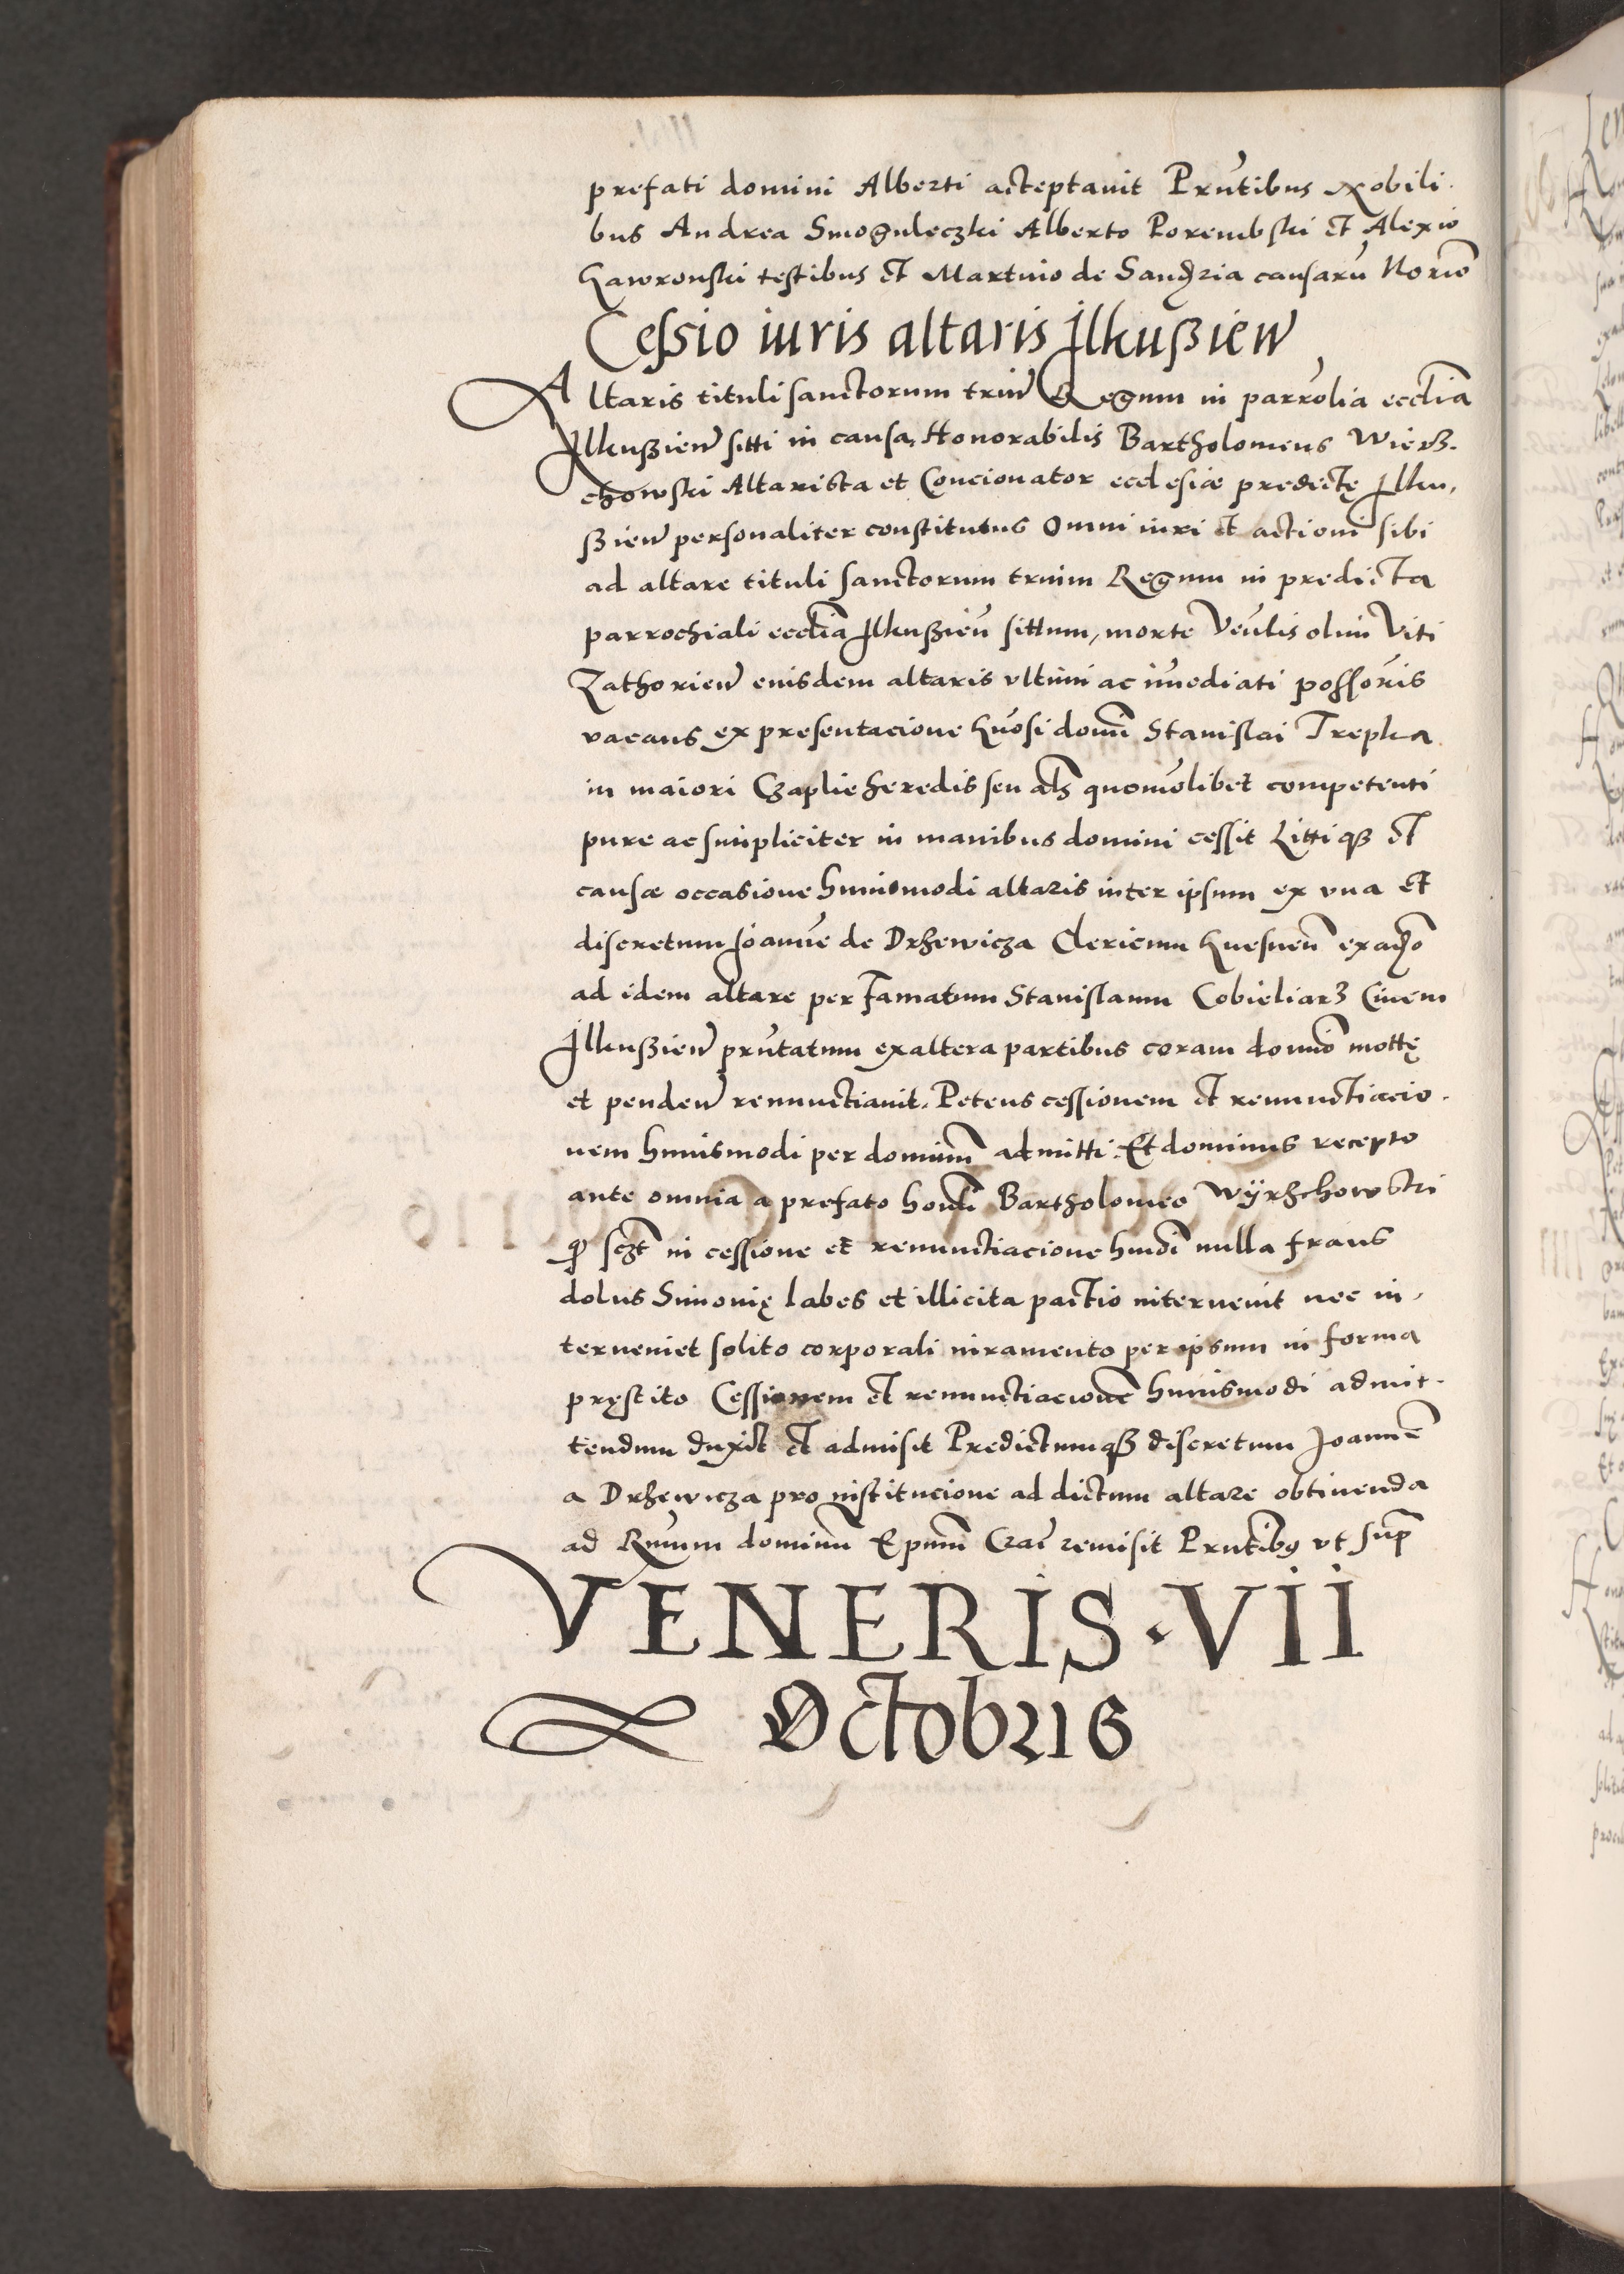 prefati domini Alberti acceptavit Prūtibus Nobili-
bus Andrea Smoguleczki Alberto Porembski et Alexio
Gawronski testibus et Martino de causarū Norio
Cessio iuris altaris Ilkußien
Altaris tituli sanctorum triū Regum in parrolia ecclīa
Ilkußien sitti in causa, Honorabilis Bartholomeus Wierß-
chowski Altarista et Concionator ecclesiæ predictę Ilku-
ßien personaliter constitutus Omni iuri et actioni sibi
ad altare tituli sanctorum trium Regum in predicta
parrochiali ecclīa Ilkußien sittum, morte Veūlis olim Viti
Zathorien eiusdem altaris ultimi ac īmediati possoris
vacans ex presentacione Gn̄osi domī Stanislai Trepka
in maiori Czaplie heredis seu als quomōlibet competenti
pure ac simpliciter in manibus domini cessit Litti qȝ et
causæ occasione huiusmodi altaris inter ipsum ex una et
discretum Joannē de Drzewicza Clericum Gnesneñ
ad idem altare per famatum Stanislaum Cobieliarz Civem
Ilkußien prūtatum ex altera partibus coram domīo mottę
et penden renunctiavit. Petens cessionem et renunctiacio-
nem huiusmodi per dominum admitti. Et dominus recepto
ante omnia a prefato honli Bartholomeo Wÿrzchowski
in cessione et renunctiacione hmōi nulla fraus
dolus Simonię labes et illicita pactio intervenit nec in-
terveniet solito corporali iuramento per ipsum in forma
pręstito Cessionem et renunctiacionē huiusmodi admit-
tendum duxit et admisit Predictumqȝ discretum Joannē
a Drzewicza pro institucione ad dictum altare obtinenda
ad Rm̄um dominū Epum̄ Crac̄ remisit Prn̄tibꝯ ut sup̄
VENERIS · VII
Octobris